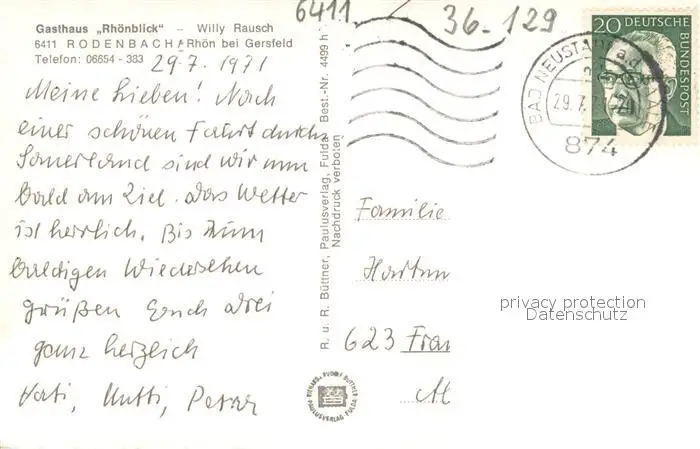 Gasthaus „Rhönblick" – Willy Rausch
6411 RODENBACH/Rhön bei Gersfeld
Telefon: 06654 - 383
29.7.1971
Meine Lieben! Nach
einer schönen Fahrt durchs
Sauerland sind wir nun
bald am Ziel. Das Wetter
ist herrlich. Bis zum
baldigen Wiedersehen
grüßen Euch drei
ganz herzlich
Vati, Mutti, Peter
R. u. R. Büttner, Paulusverlag, Fulda Best.-Nr. 4499 h
Nachdruck verboten
6411
36-129
20 DEUTSCHE
BUNDESPOST
BAD NEUSTADT a.d. SAALE
29.7.71-20
874
Familie
623 Fran
privacy protection
Datenschutz
RICHARD + RUDOLF BÜTTNER
PAULUSVERLAG FULDA